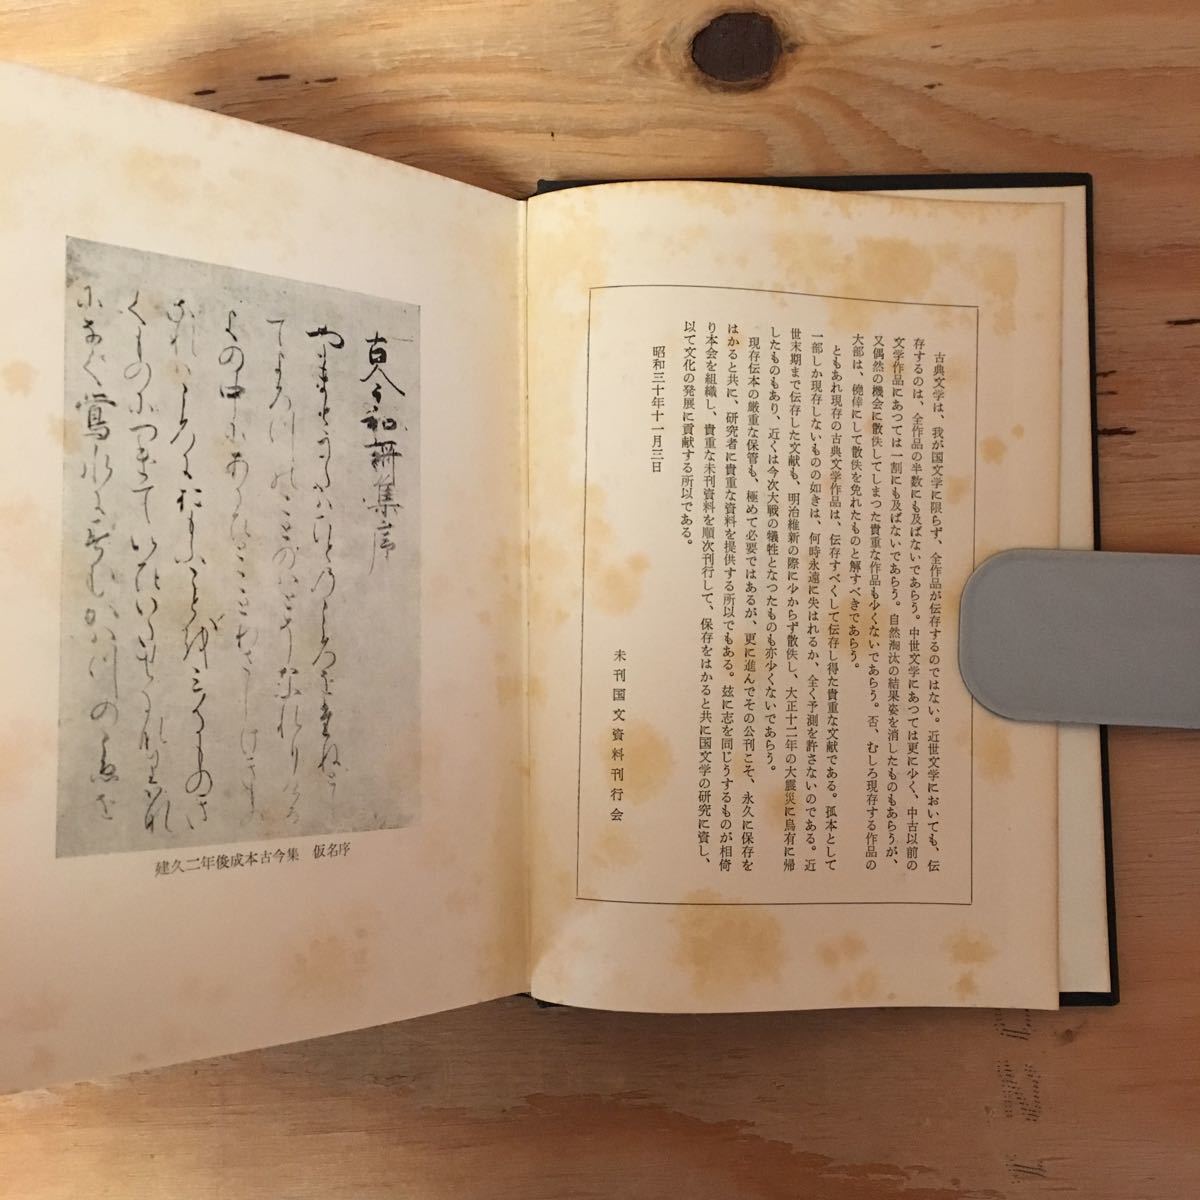 古今和謌集序
やまとうたはひとのこゝろをたねとし
てよろつのことのはとそなれりける
よの中にあるひとことわさしけきも
のなれはこゝろにおもふことを
建久二年俊成本古今集 仮名序
古典文学は、我が国文学に限らず、全作品が伝存するのではない。近世文学においても、伝
存するのは、全作品の半数にも及ばないであらう。中世文学にあつては更に少く、中古以前の
文学作品にあつては一割にも及ばないであらう。自然淘汰の結果姿を消したものもあらうが、
又偶然の機会に散佚してしまつた貴重な作品も少くないであらう。否、むしろ現存する作品の
大部は、僥倖にして散佚を免れたものと解すべきであらう。
ともあれ現存の古典文学作品は、伝存すべくして伝存し得た貴重な文献である。孤本として
一部しか現存しないものの如きは、何時永遠に失はれるか、全く予測を許さないのである。近
世末期まで伝存した文献も、明治維新の際に少からず散佚し、大正十二年の大震災に烏有に帰
したものもあり、近くは今次大戦の犠牲となつたものも亦少くないであらう。
現存伝本の厳重な保管も、極めて必要ではあるが、更に進んでその公刊こそ、永久に保存を
はかると共に、研究者に貴重な資料を提供する所以でもある。玆に志を同じうするものが相倚
り本会を組織し、貴重な未刊資料を順次刊行して、保存をはかると共に国文学の研究に資し、
以て文化の発展に貢献する所以である。
昭和三十年十一月三日
未刊国文資料刊行会